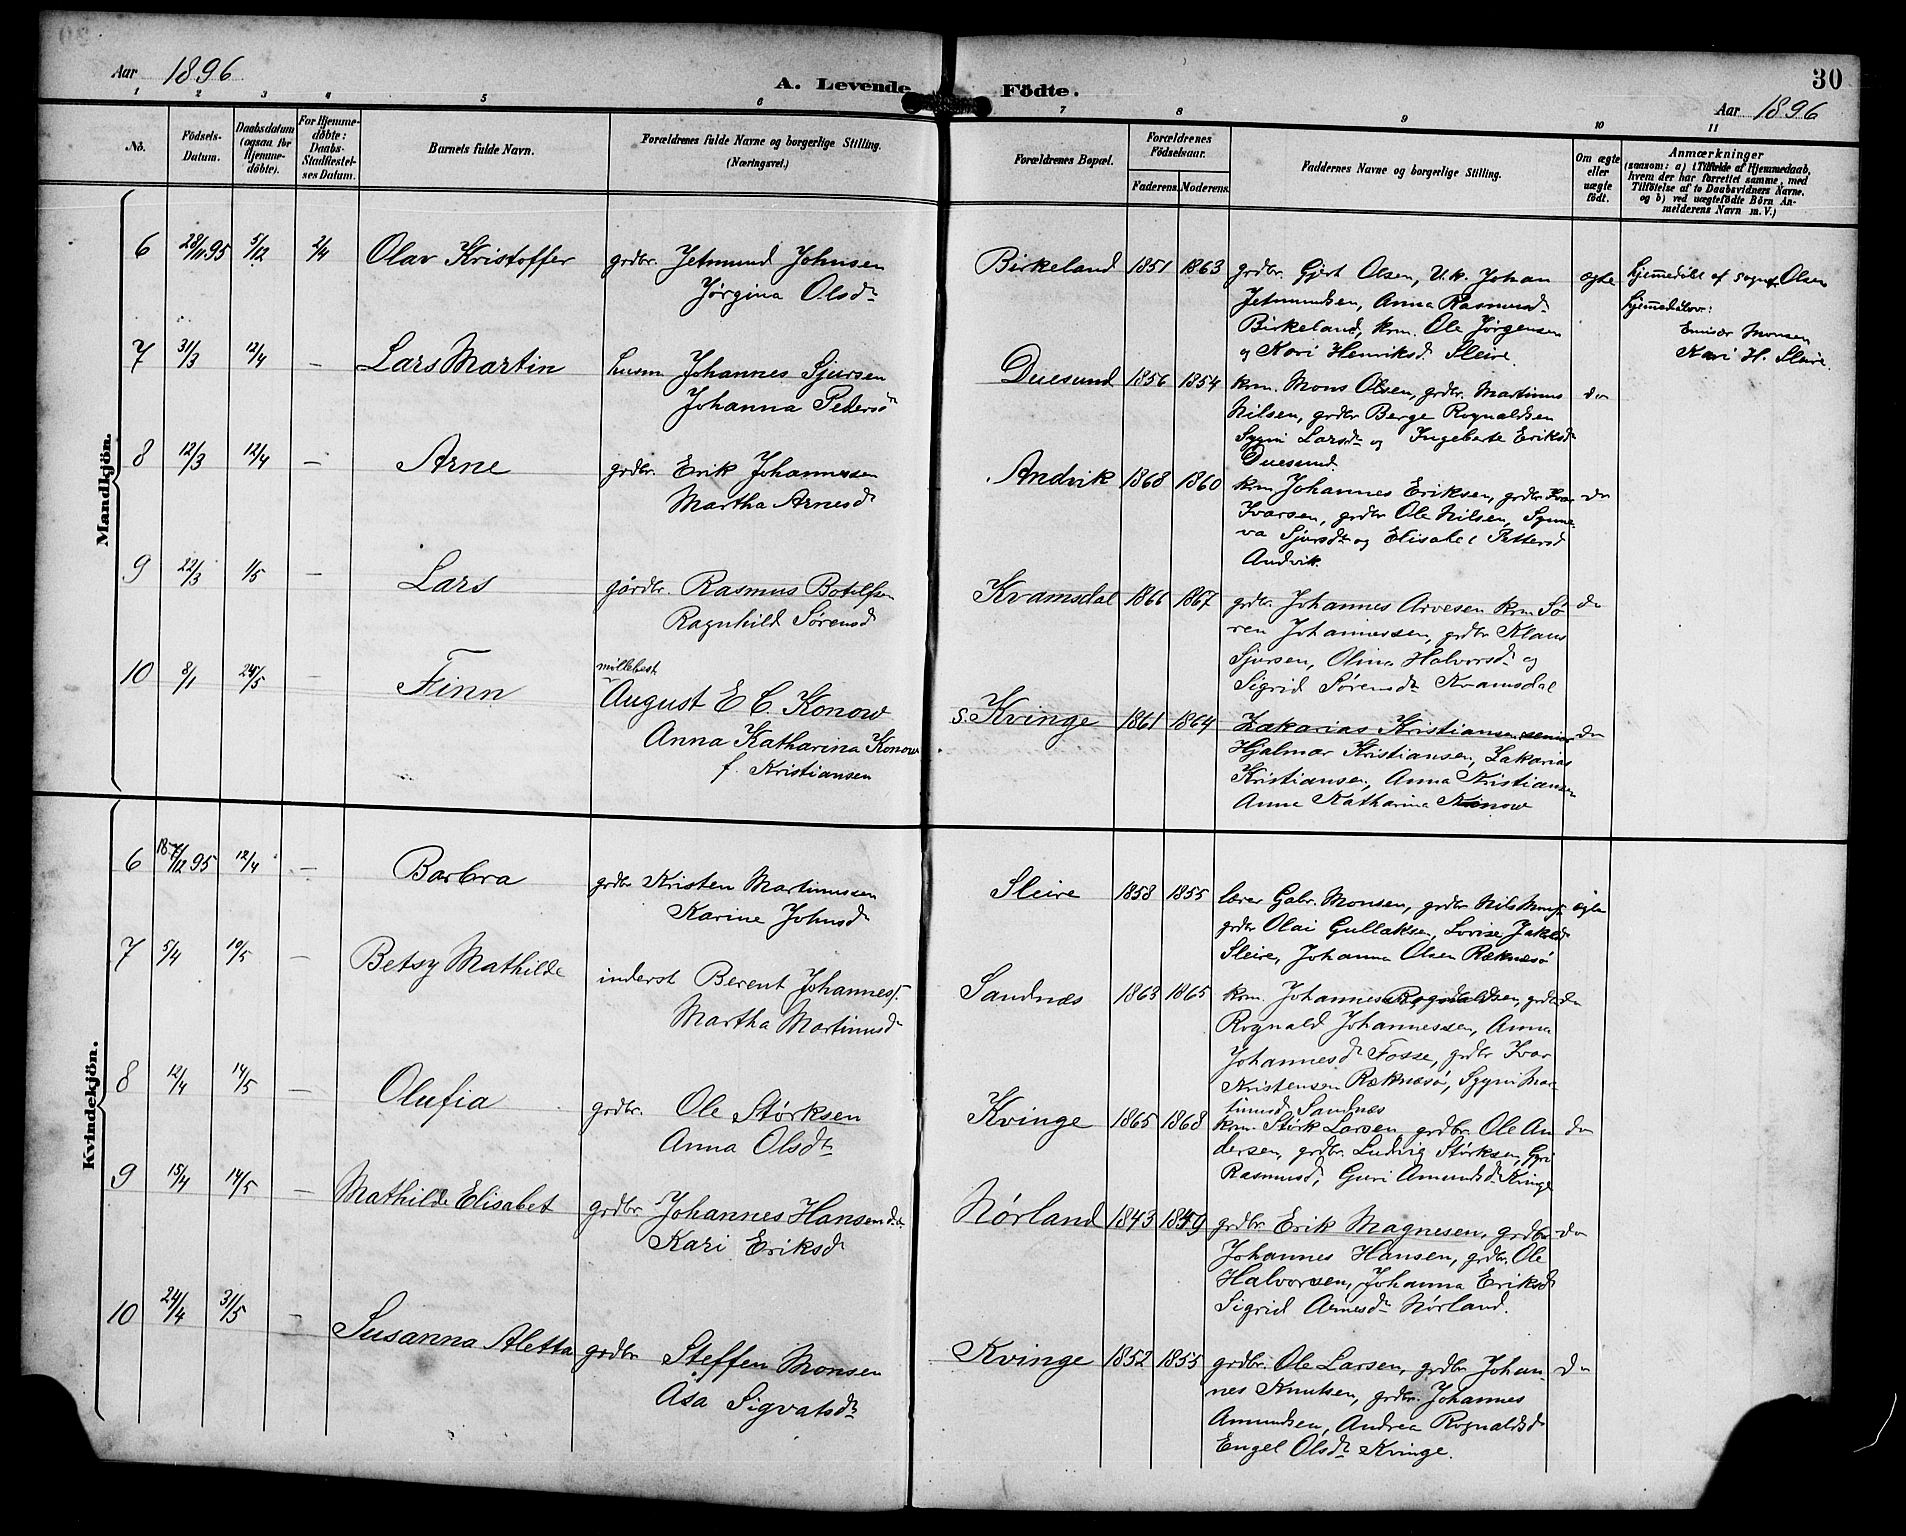 Aar 1896
A. Levende Födte.
30
Aar 1896
1 2 3 4 5 6 7 8 9 10 11
No.
Födsels-Datum.
Daabsdatum (ogsaa for Hjemme-døbte).
For Hjemme-døbte: Daabs-Stadfæstel-ses Datum.
Barnets fulde Navn.
Forældrenes fulde Navne og borgerlige Stilling. (Næringsvei.)
Forældrenes Bopæl.
Forældrenes Födselsaar.
Faderens. Moderens.
Faddernes Navne og borgerlige Stilling.
Om ægte eller uægte født.
Anmærkninger
(saasom: a) i Tilfælde af Hjemmedaab,
hvem der har forrettet samme, med
Tilføielse af to Daabsvidners Navne.
og b) ved uægtefødte Börn An-
melderens Navn m. V.)
Mandkjön.
6 28/11 95 5/12 2/4 Olav Kristoffer grdbr. Jetmund Johnsen
Jørgina Olsdr
Birkeland 1851 1863 grdbr. Gjert Olsen, U.k. Johan
Jetmundsen, Anna Rasmusd
Birkeland, krm. Ole Jørgensen
og Kari Henriksd. Sleire.
ægte
hjemmedøbt af sognepr. Olsen
hjemmedøbsv:
Monsen
Kari H. Sleire.
7 31/3 12/4 — Lars Martin husm Johannes Sjursen
Johanna Pedersd
Duesund 1856 1854 krm. Mons Olsen, grdbr. Martinus
Nilsen, grdbr Berge Rognaldsen
Sygni Larsdr og Ingeborte Eriksdr
Duesund.
do
8 12/3 12/4 — Arne grdbr. Erik Johannesen
Martha Arnesdr
Andvik 1868 1860 krm Johannes Eriksen, grdbr Ivar
Ivarsen, grdbr Ole Nilsen, Synne-
va Sjursdr og Elisabet Pettersd
Andvik.
do
9 22/3 1/5 — Lars gårdbr. Rasmus Botolfsen
Ragnhild Sørensd
Kvamsdal 1866 1867 grdbr. Johannes Arvesen krm Sø-
ren Johannessen, grdbr Klaus
Sjursen, Olina Halvorsdr og
Sigrid Sørensdr Kvamsdal
do
10 8/1 25/5 — Finn møllebest.
August E C. Konow
Anna Katharina Konow
f. Kristiansen
S. Kvinge 1861 1864 Zakarias Kristiansen senior
Hjalmar Kristiansen, Zakarias
Kristiansen, Anna Kristiansen
Anna Katharina Konow
do
Kvindekjön.
6 /12 95 12/4 — Barbra grdbr Kristen Martinussen
Karine Johnsd
Sleire 1858 1855 lærer Gabr. Monsen, grdbr Nils
grdbr Olai Gullaksen, Lovise Jakobd
Sleire, Johanna Olsen Ræknesø
ægte
7 5/4 10/5 — Betsy Mathilde inderst Berent Johannes.
Martha Martinusdr
Sandnæs 1863 1865 krm. Johannes Rognaldsen, grdbr
Rognald Johannessen, Anna
Johannesdr Fosse, grdbr Ivar
Kristensen Ræknesø, Sygni Mar-
tinusd Sandnæs
do
8 12/4 14/5 — Olufia grdbr. Ole Størksen
Anna Olsdr
Kvinge 1865 1868 krm. Størk Larsen grdbr. Ole An-
dersen, grdbr. Ludvig Størksen, Gyri
Rasmusd, Guri Amundsdr Kvinge
do
9 15/4 14/5 — Mathilde Elisabet grdbr. Johannes Hansen
Kari Eriksdr
Nørland 1843 1859 grdbr. Erik Magnesen, grdbr
Johannes Hansen, grdbr. Ole
Halvorsen, Johanna Eriksd
Sigrid Arnesdr Nørland.
do
10 24/4 31/5 — Susanna Aletta grdbr Steffen Monsen
Åsa Sigvatsdr
Kvinge 1852 1855 grdbr. Ole Larsen, grdbr Johan-
nes Knutsen, grdbr. Johannes
Amundsen, Andrea Rognaldsdr
Engel Olsdr Kvinge.
do